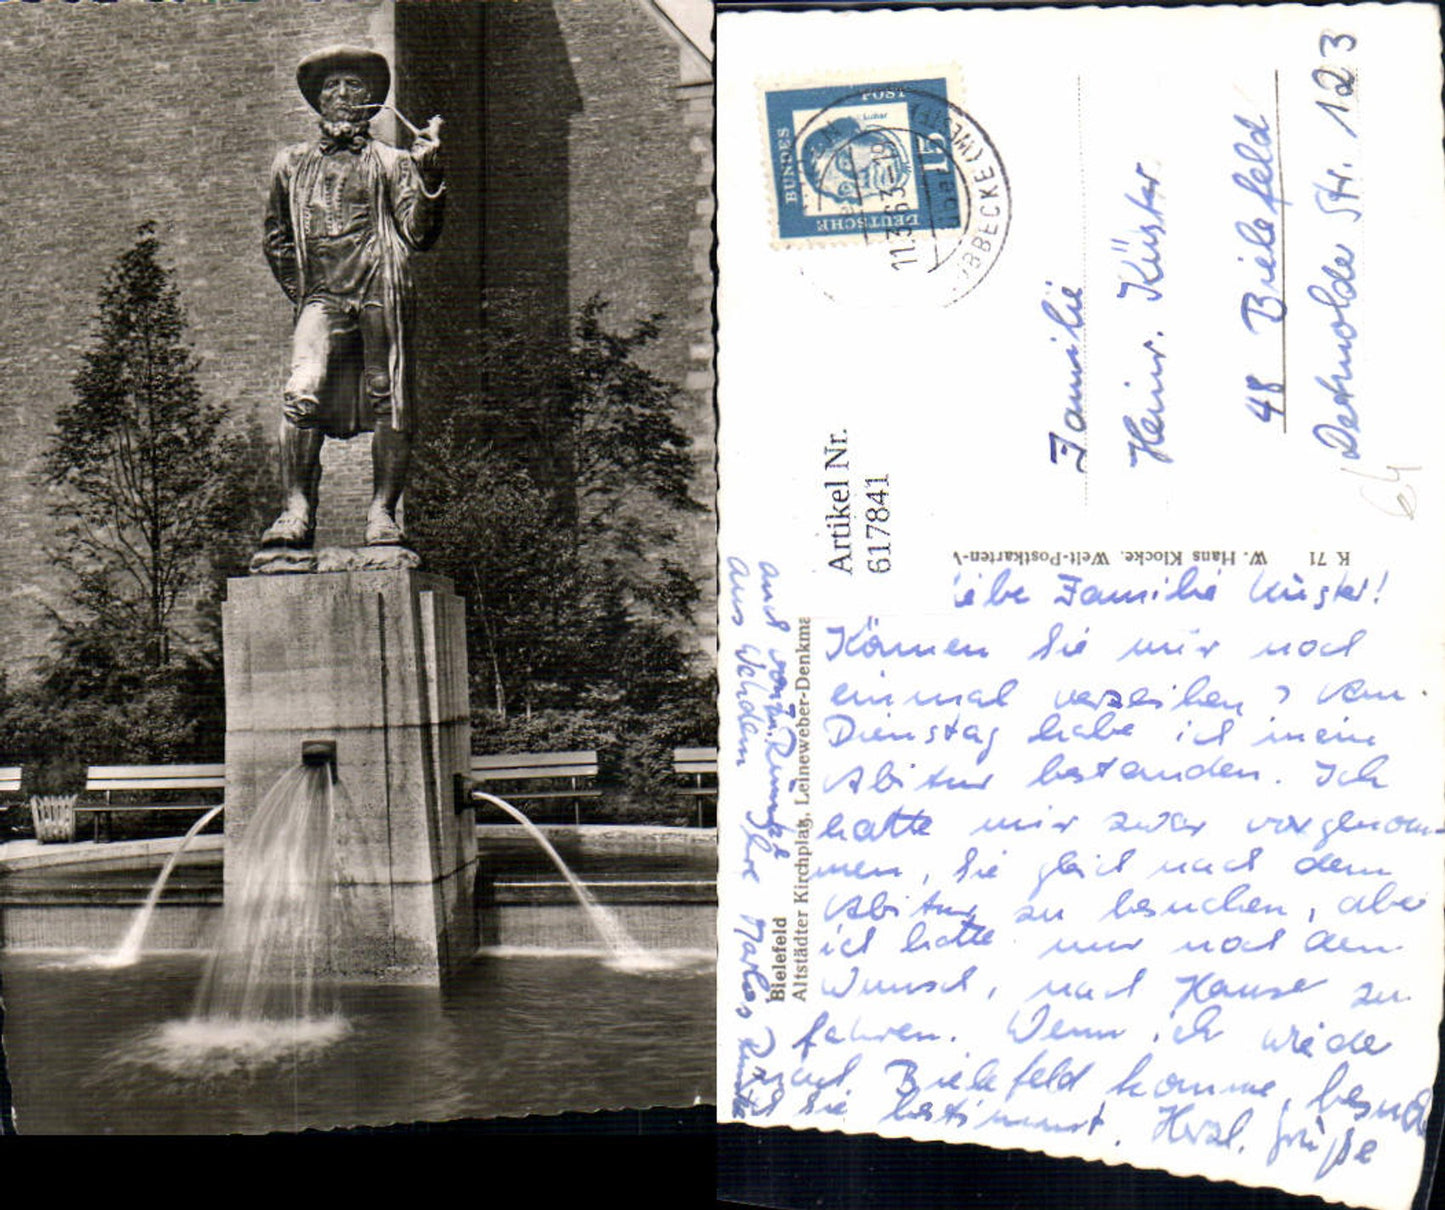 DEUTSCHE
BUNDES
POST
15
Luther
LÜBBECKE (WESTF)
11.3.63-18
Familie
Heinr. Küster
48 Bielefeld
Detmolder Str. 123
64
Artikel Nr.
617841
K 71 W. Hans Klocke. Welt-Postkarten-V
Bielefeld
Altstädter Kirchplatz, Leineweber-Denkma
iebe Familie Küster!
Können Sie mir noch
einmal verzeihen? Am
Dienstag habe ich mein
Abitur bestanden. Ich
hatte mir zwar vorgenom-
men, Sie gleich nach dem
Abitur zu besuchen, aber
ich hatte nur noch den
Wunsch, nach Hause zu
fahren. Wenn ich wieder
nach Bielefeld komme, besuche
ich Sie bestimmt. Herzl. Grüße
aus Wehdem Ihre
auch von